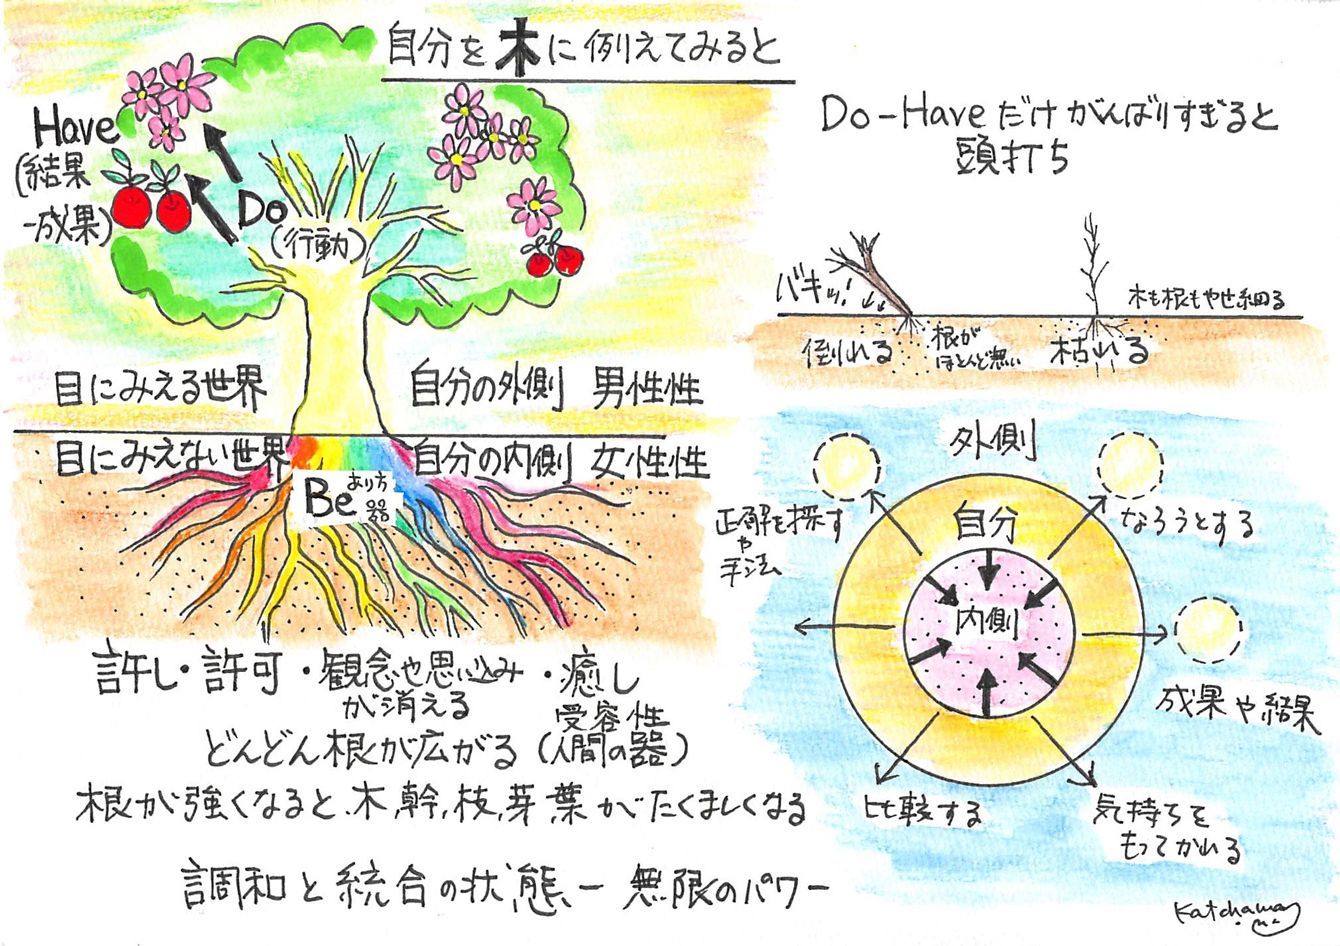 自分を木に例えてみると
Have
(結果
-成果)
Do
(行動)
目にみえる世界
自分の外側 男性性
目にみえない世界
自分の内側 女性性
Be あり方
器
許し・許可・観念や思い込み
が消える
・癒し
受容性
(人間の器)
どんどん根が広がる
根が強くなると、木、幹、枝、芽、葉がたくましくなる
調和と統合の状態ー無限のパワー
Do-Haveだけがんばりすぎると
頭打ち
バキッ!
倒れる
根が
ほとんど無い
枯れる
木も根もやせ細る
外側
自分
内側
正解を探す
や
手法
なろうとする
成果や結果
比較する
気持ちを
もってかれる